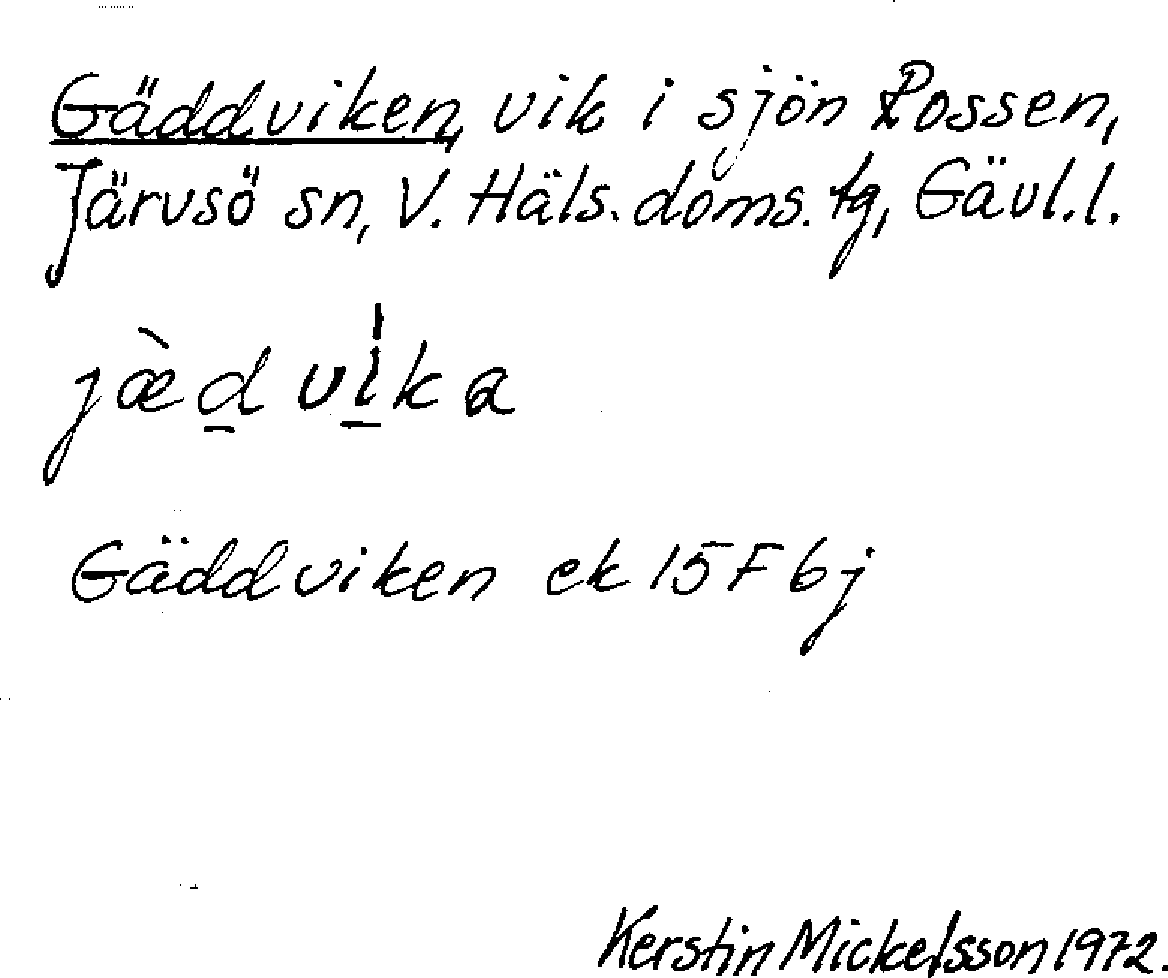 Gäddviken, vik i sjön Rossen,
Järvsö sn, V. Häls. doms. tg, Gävl. l.
jæ̀d̲ vi̲ka
Gäddviken ek 15F 6j
Kerstin Mickelsson 1972.